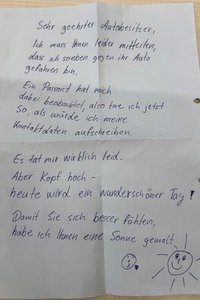 Sehr geehrter Autobesitzer,
Ich muss Ihnen leider mitteilen,
dass ich soeben gegen ihr Auto
gefahren bin.
Ein Passant hat mich
dabei beobachtet, also tue ich jetzt
So, als würde ich meine
Kontaktdaten aufschreiben.
Es tat mir wirklich leid.
Aber Kopf hoch -
heute wird ein wunderschöner Tag!
Damit Sie sich besser fühlen,
habe ich Ihnen eine Sonne gemalt.